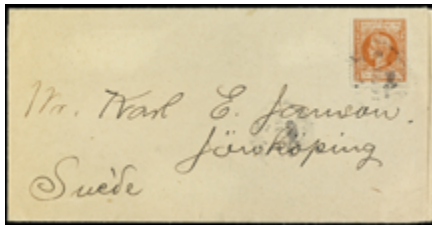 Mr. Karl E. Janson.
Jönköping
Suède